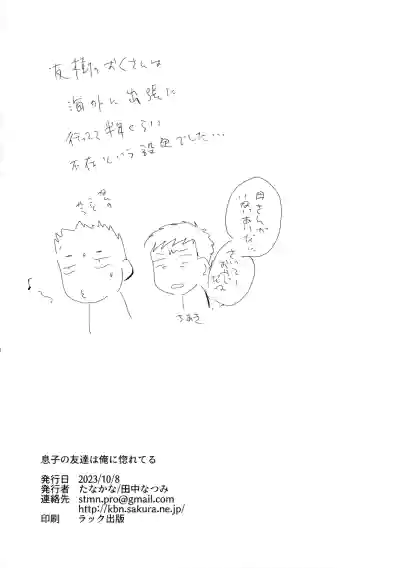 友樹のおくさんは
海外に出張に
行ってて半年くらい
不在という設定でした…
母さんが
さいってー
ちあき
息子の友達は俺に惚れてる
発行日 2023/10/8
発行者 たなかな/田中なつみ
連絡先 stmn.pro@gmail.com
http://kbn.sakura.ne.jp/
印刷 ラック出版